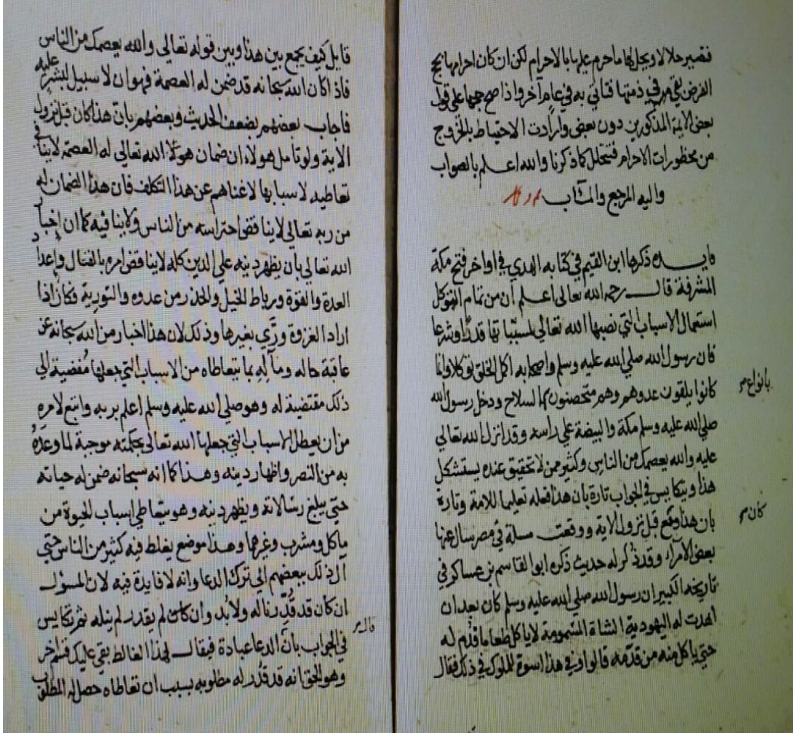 فتصير حلالا ويحل لها ما حرم عليها بالاحرام لكن ان كان احرامها بحج
الفرض بقي في ذمتها فتاتي به في عام آخر واذا صح حجها على قول
بعض الايمة المذكورين دون بعض وارادت الاحتياط بالخروج
من محظورات الاحرام فتتحلل كما ذكرنا والله اعلم بالصواب
واليه المرجع والمآب
فايده ذكرها ابن القيم في كتابه الهدي في اواخر فتح مكة
المشرفة قال رحمه الله تعالى اعلم ان من تمام التوكل
استعمال الاسباب التي نصبها الله تعالى لمسبباتها قدرا وشرعا
فان رسول الله صلى الله عليه وسلم واصحابه اكل الخلق توكلا وانما
كانوا يلقون عدوهم وهم متحصنون بالسلاح ودخل رسول الله
بانواع
صلى الله عليه وسلم مكة والبيضة على راسه وقد انزل الله تعالى
عليه والله يعصمك من الناس وكثير من لا تحقيق عنده يستشكل
هذا ويتكايس في الجواب تارة بان هذا فعله تعليما للامة وتارة
بان هذا وقع قبل نزول الاية ووقعت مسلة في مصر سال عنها
كان
بعض الامرآء وقد ذكر له حديث ذكره ابو القاسم بن عساكر في
تاريخه الكبير ان رسول الله صلى الله عليه وسلم كان بعد ان
اهدت له اليهودية الشاة المسمومة لا ياكل طعاما قدم له
حتى ياكل منه من قدمه قالوا وفي هذا اسوة للملوك في ذلك فقال
قايل كيف يجمع بين هذا وبين قوله تعالى والله يعصمك من الناس
فاذا كان الله سبحانه قد ضمن له العصمة فهو ان لا سبيل لبشر عليه
فاجاب بعضهم بضعف الحديث وبعضهم بان هذا كان قبل نزول
الاية ولو تامل هولاء ان ضمان الله تعالى له العصمة لا ينافي
تعاطيه لاسبابها لاغناهم عن هذا التكلف فان هذا الضمان له
من ربه تعالى لا يناقض احتراسه من الناس ولا ينافيه كما ان اخبار
الله تعالى بان يظهر دينه على الدين كله لا يناقض امره بالقتال واعداد
العدة والقوة ورباط الخيل والحذر من عدوه والتورية فكان اذا
اراد الغزوة ورّى بغيرها وذلك لان هذا اخبار من الله سبحانه عن
عاقبة حاله ومآله بما يتعاطاه من الاسباب التي جعلها مفضية الى
ذلك مقتضية له وهو صلى الله عليه وسلم اعلم بربه واتبع لامره
من ان يعطل الاسباب التي جعلها الله تعالى بحكمته موجبة لما وعده
به من النصر واظهار دينه وهذا كما انه سبحانه ضمن له حياته
حتى يبلغ رسالاته ويظهر دينه وهو يتعاطى اسباب الحيوة من
ماكل ومشرب وغيرها وهذا موضع يغلط فيه كثير من الناس حتى
ال ذلك ببعضهم الى ترك الدعا وانه لا فايدة فيه لان المسول
ان كان قد قدر ناله ولا بد وان كان لم يقدر لم ينله ثم تكايس
في الجواب بان الدعا عبادة فيقال لهذا الغالط بقي عليك قسم آخر
قال
وهو الحق انه قد قدر له مطلوبه بسبب ان تعاطاه حصل له المطلوب